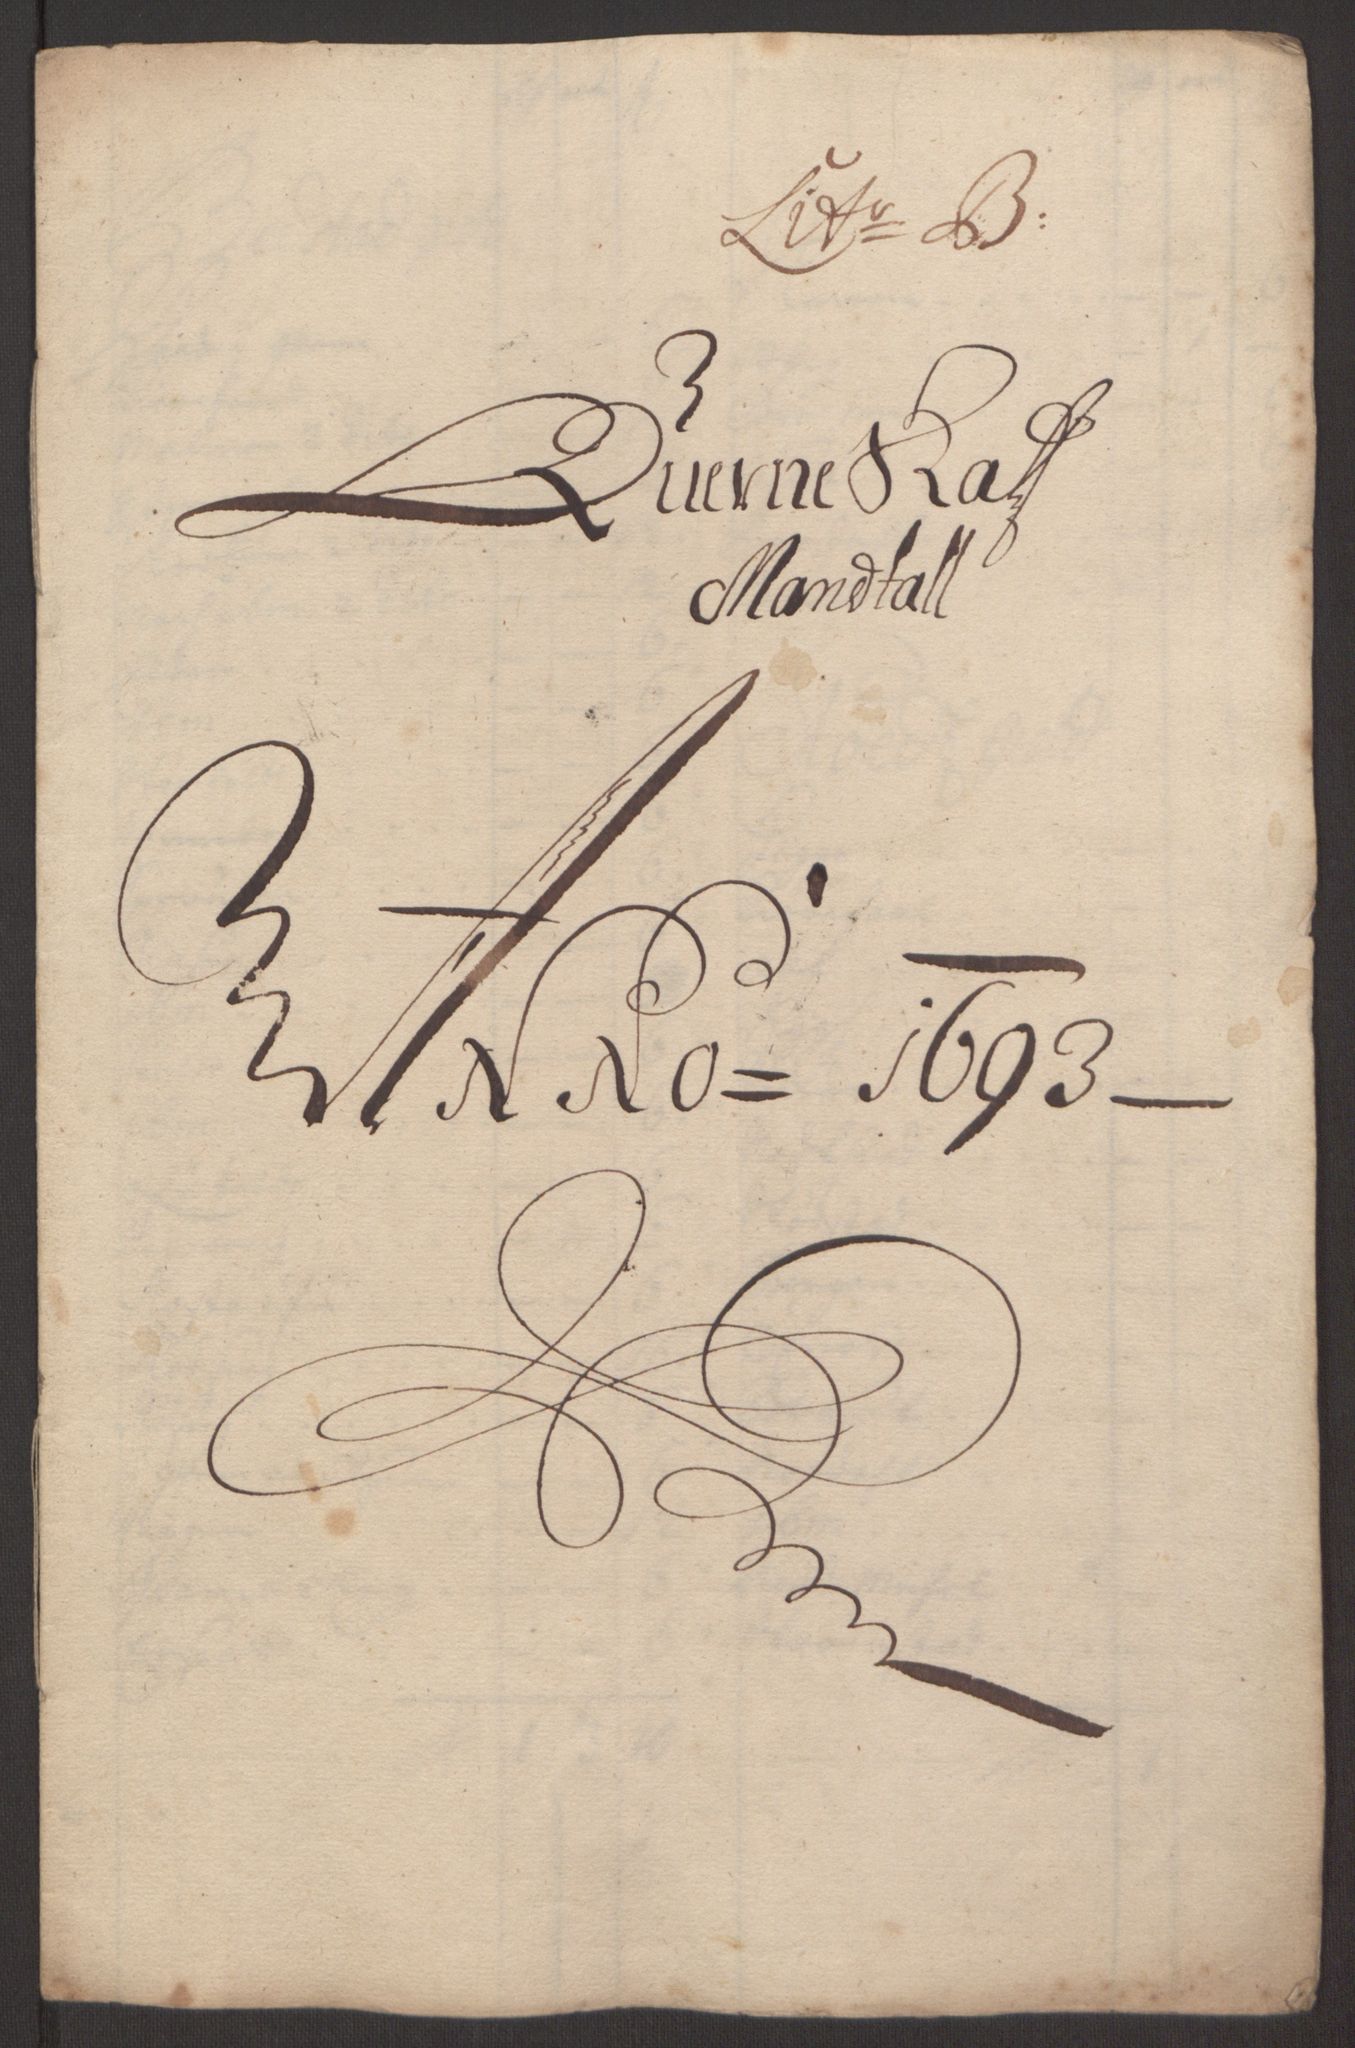 Litr B:
Querne Kald
Mandtall
ANNO = 1693